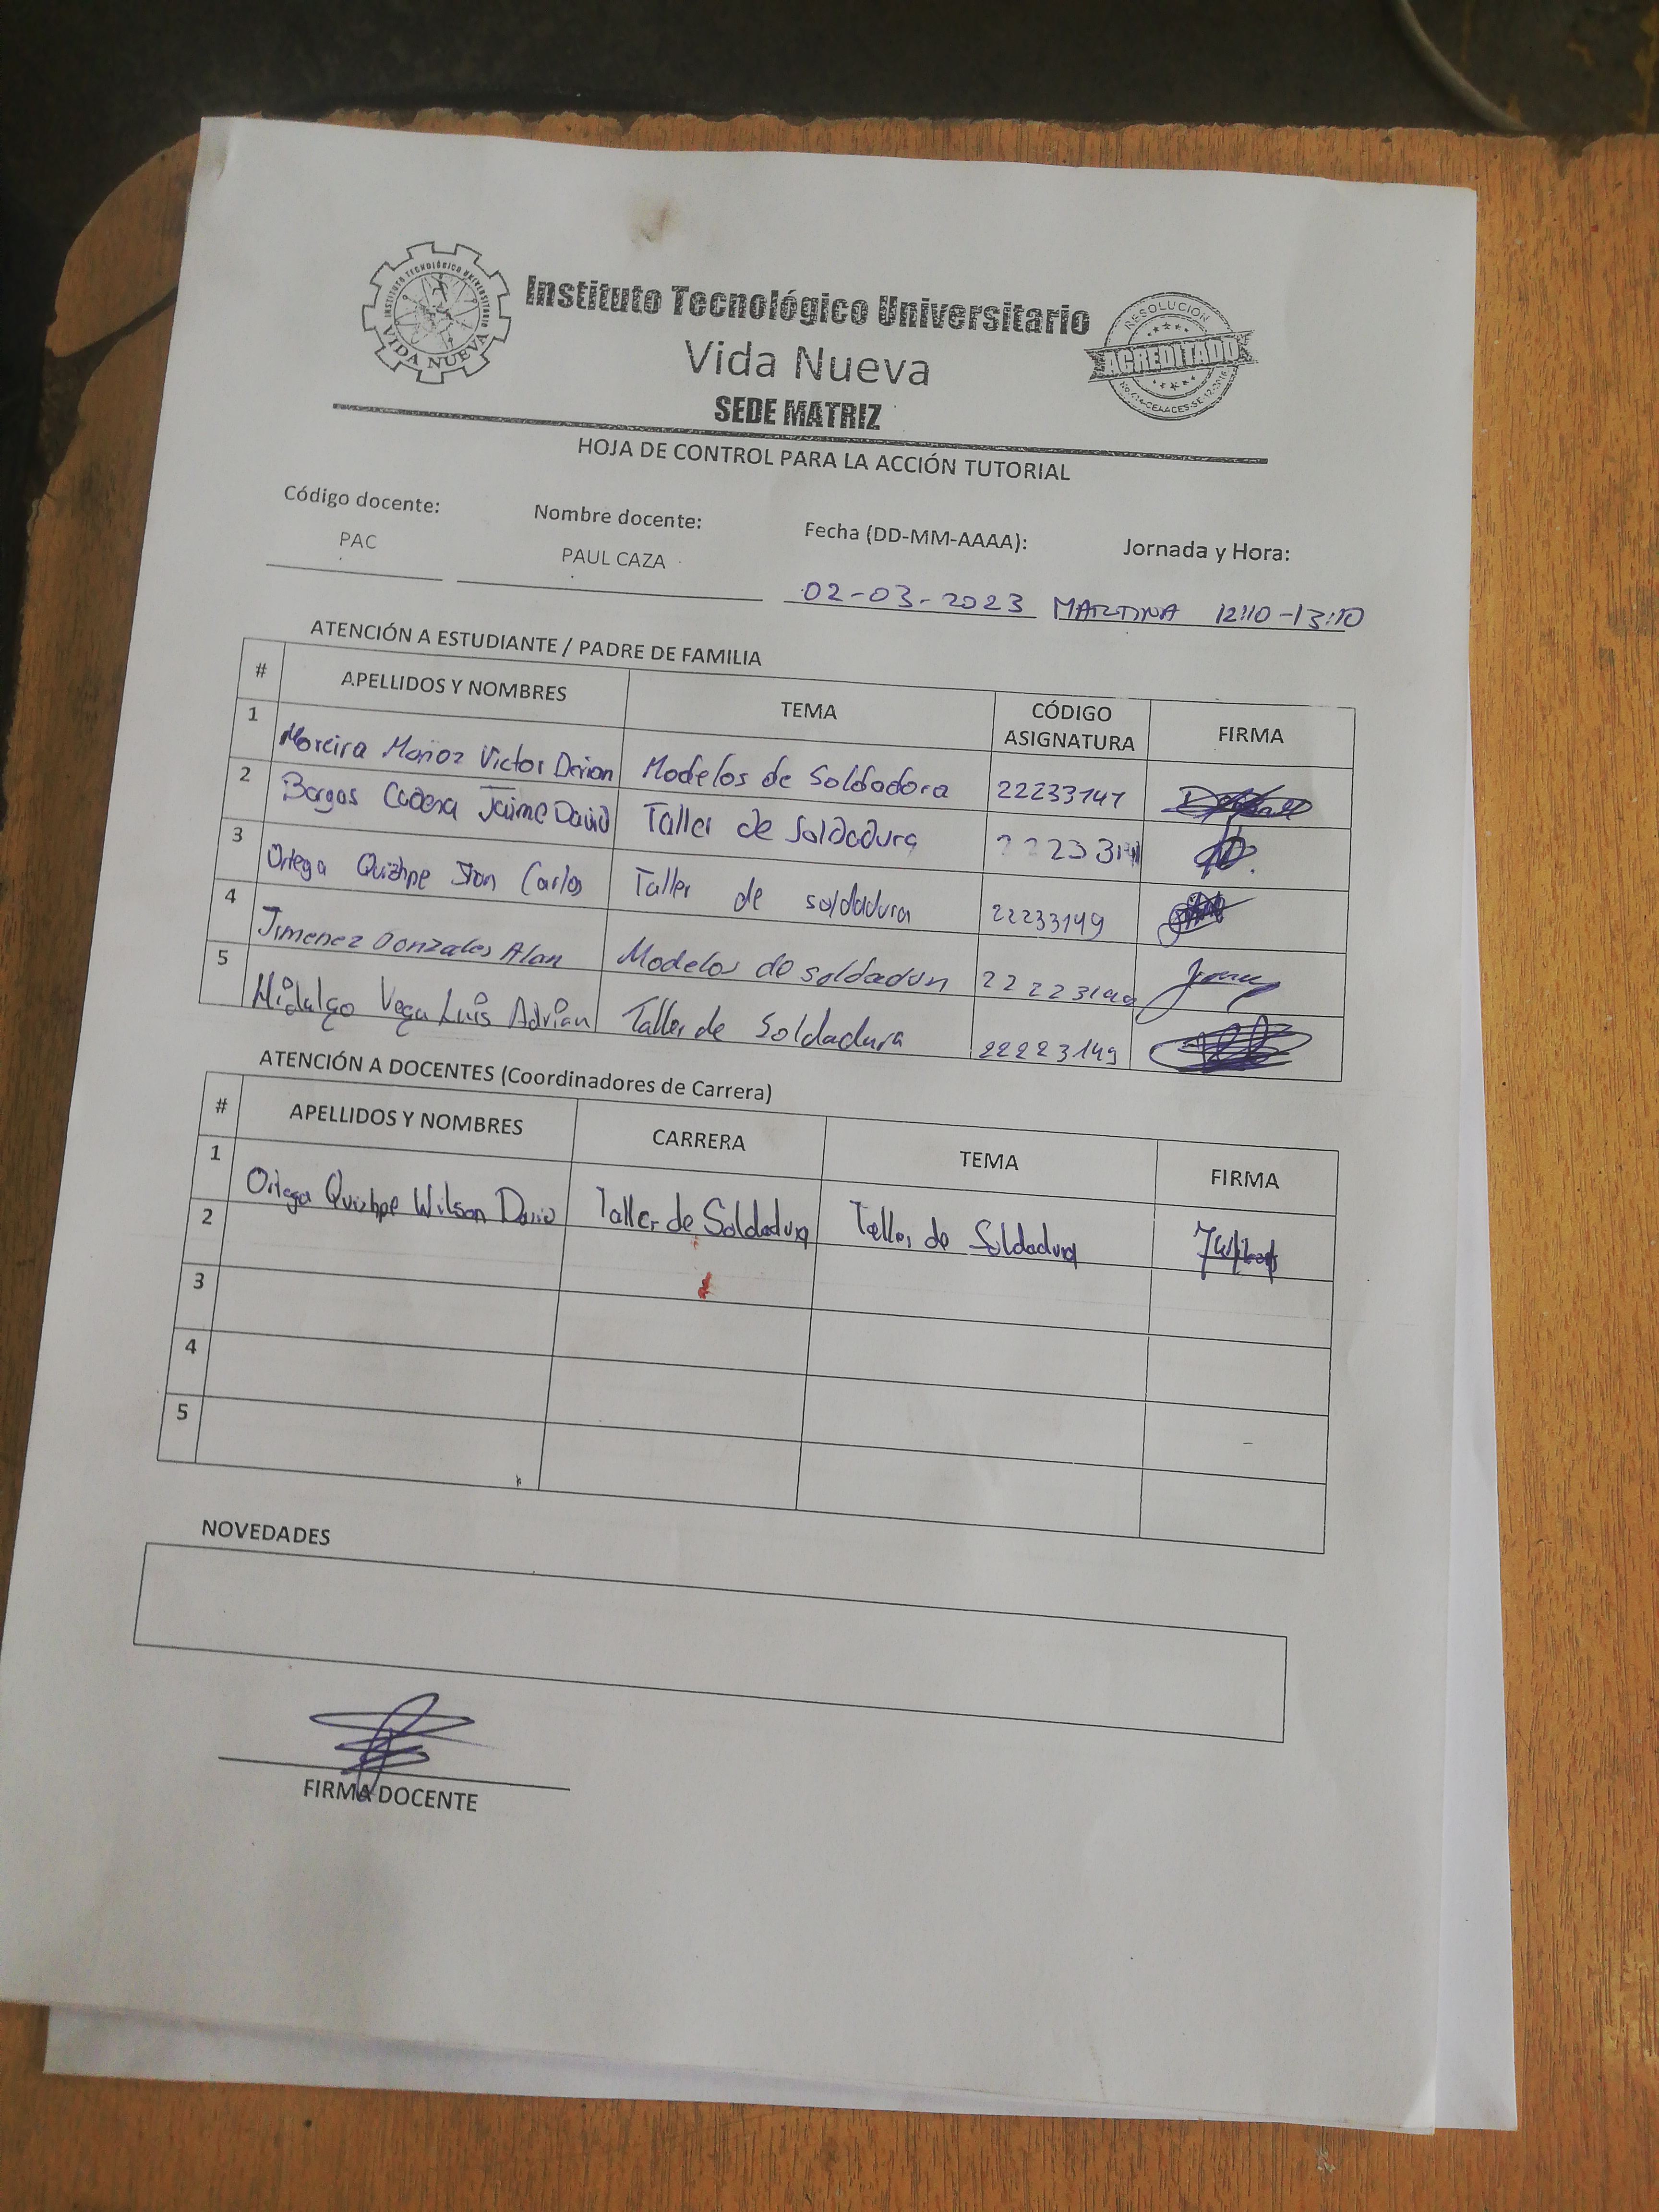 INSTITUTO TECNOLÓGICO UNIVERSITARIO
VIDA NUEVA
Instituto Tecnológico Universitario
Vida Nueva
SEDE MATRIZ
RESOLUCIÓN
ACREDITADO
HOJA DE CONTROL PARA LA ACCIÓN TUTORIAL
Código docente: Nombre docente: Fecha (DD-MM-AAAA): Jornada y Hora:
PAC PAUL CAZA 02-03-2023 12:10-13:10
ATENCIÓN A ESTUDIANTE / PADRE DE FAMILIA
# APELLIDOS Y NOMBRES TEMA CÓDIGO ASIGNATURA FIRMA
1 Moreira Muñoz Victor Modelos de Soldadora
2 Jaime David Taller de Soldadura
3 Ortega Quizhpe Carlos Taller de soldadura 22233149
4 Jimenez Gonzales Alan Modelos de
5 Hidalgo Vega Luis Adrian Taller de Soldadura 22223149
ATENCIÓN A DOCENTES (Coordinadores de Carrera)
# APELLIDOS Y NOMBRES CARRERA TEMA FIRMA
1 Ortega Quizhpe Wilson David Taller de Soldadura Taller de Soldadura
2
3
4
5
NOVEDADES
FIRMA DOCENTE